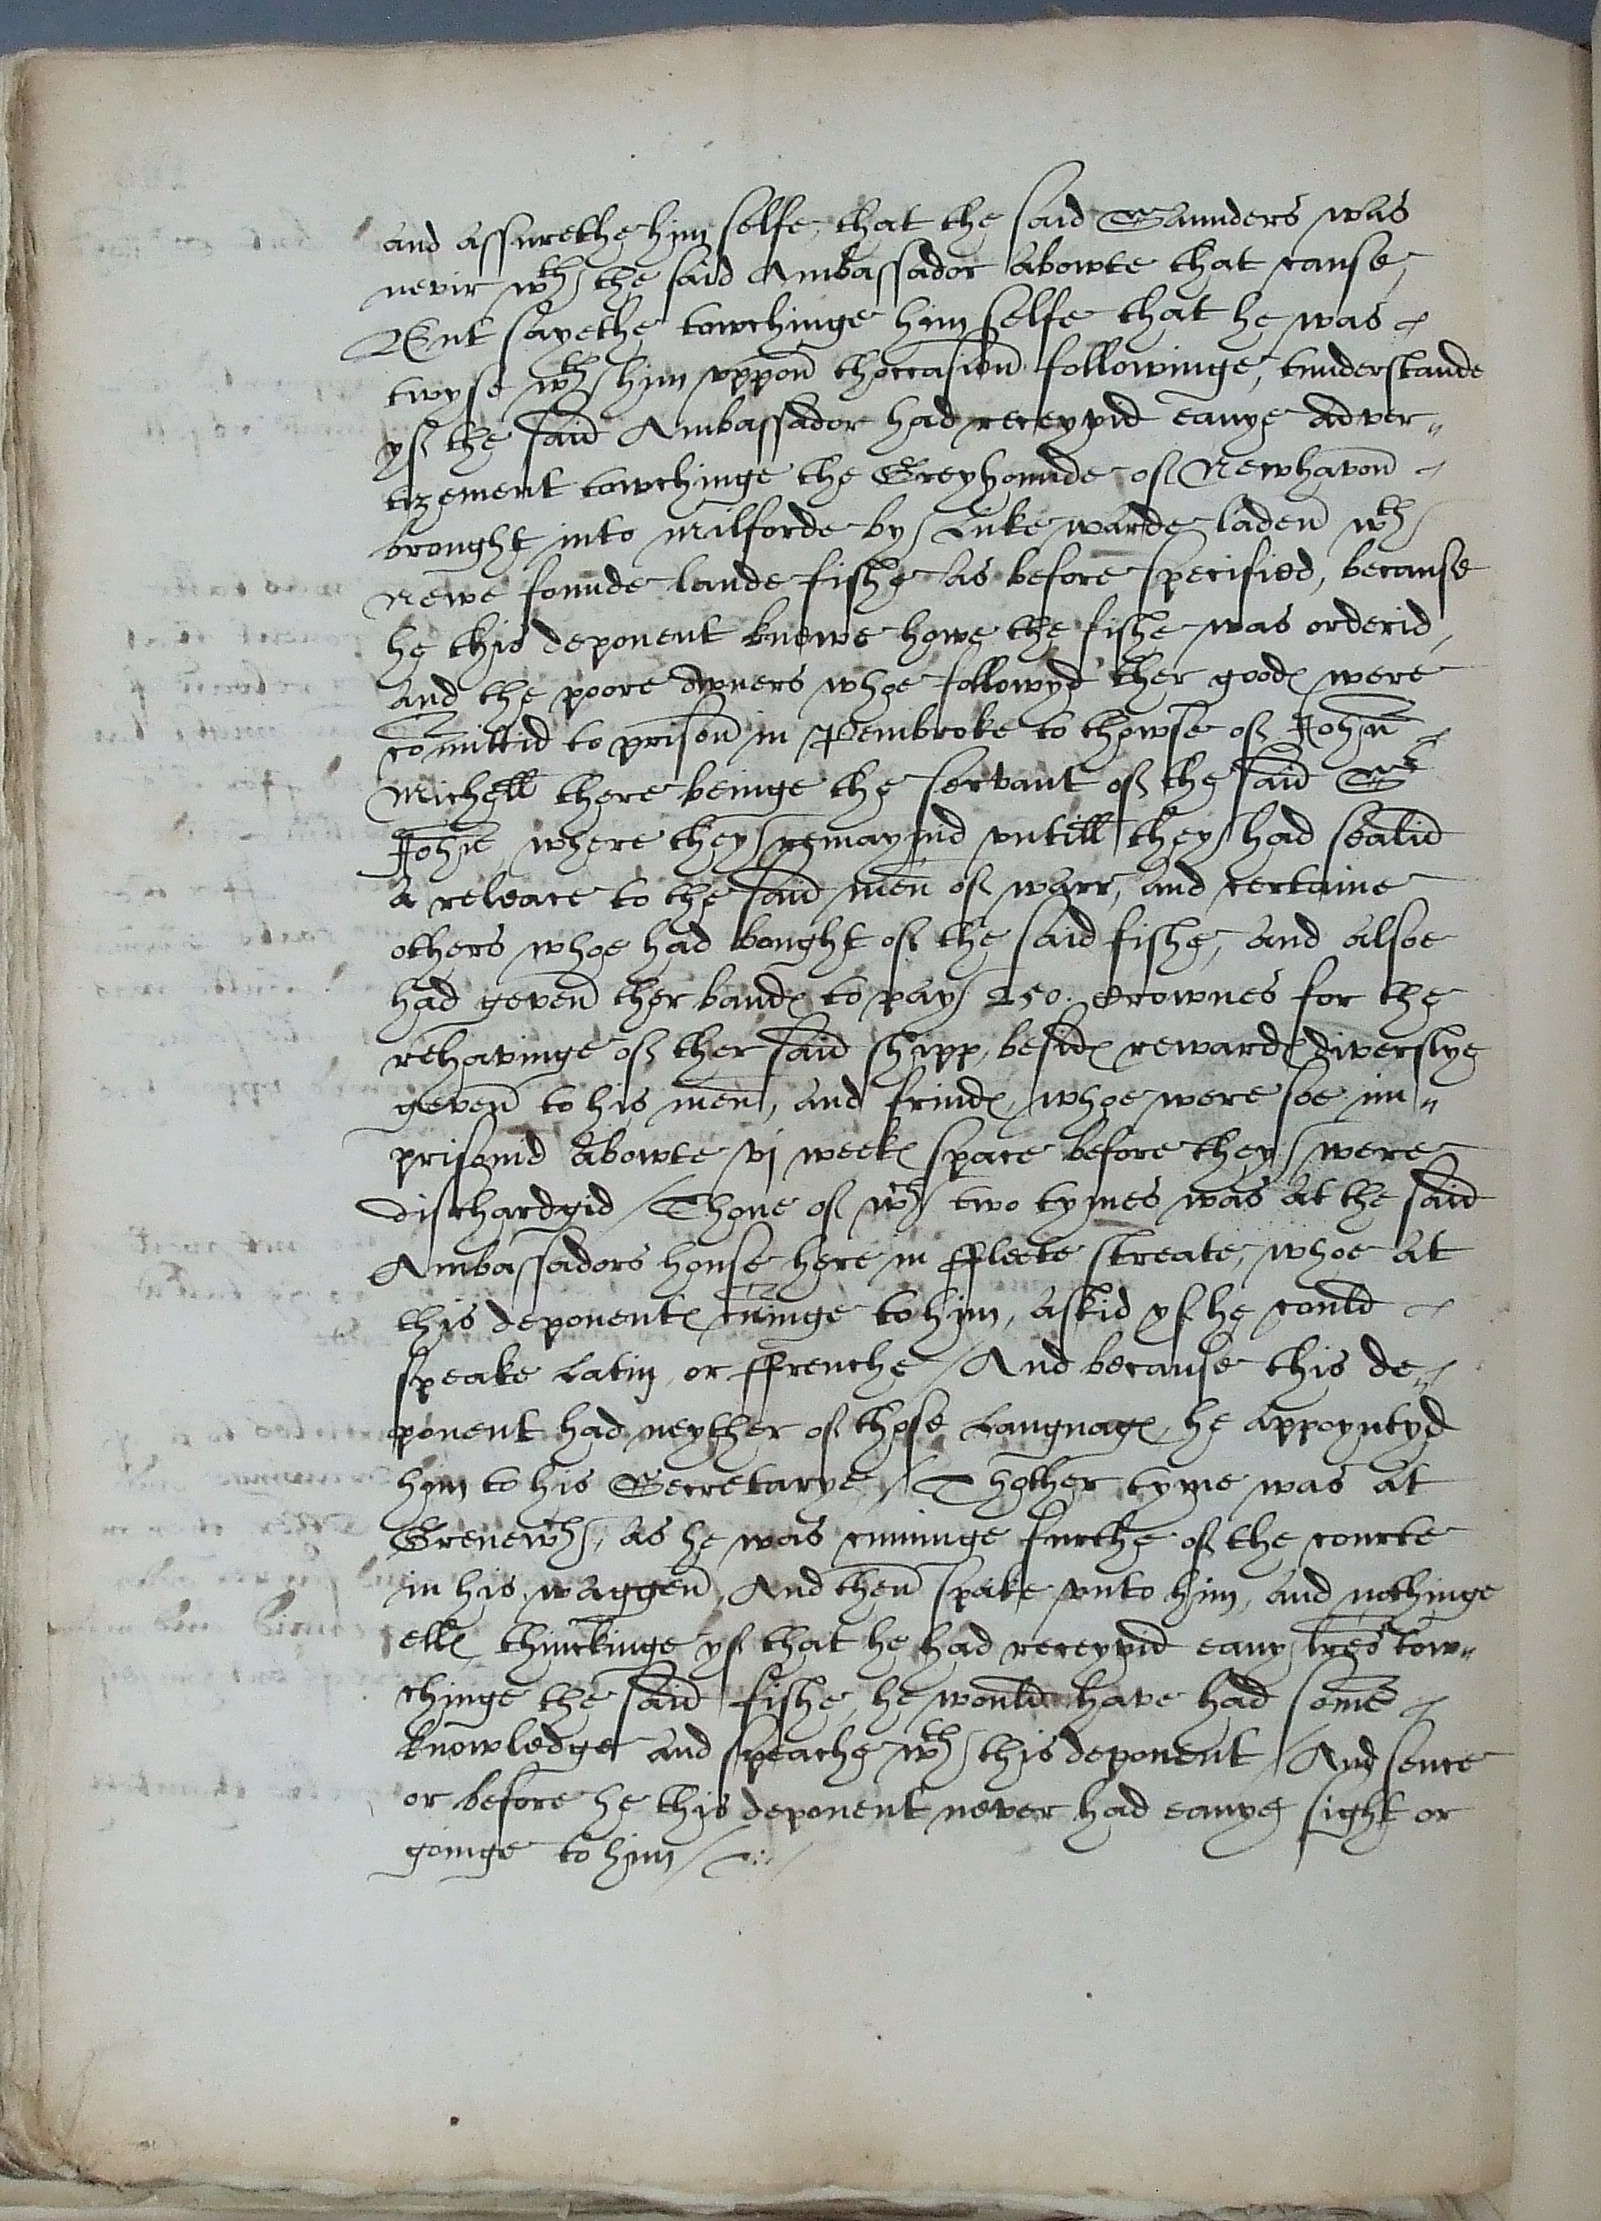 and assurethe hym selfe, that the said Saunders was
nevir wth the said Ambassador abowte that cause,
But sayethe towchinge him selfe that he was
twyse wth hym uppon thoccasion followinge, tunderstande
yf the said Ambassador had receyvid eanye adver„
tizement towchinge the Greyhounde of Newhavon
brought into Milforde by Luke warde laden wth
newe founde lande fishe as before specified, because
he this deponent knewe howe the fishe was orderid,
and the poore owners whoe followyd ther goodes were
comittid to prison in Pembroke to thowse of John
Michell there beinge the servant of the said Sr
John, where they remaynid untill they had sealid
a releace to the said men of warr, and certaine
others whoe had bought of the said fishe, and alsoe
had geven ther bandes to pay 250. Crownes for the
rehavinge of ther said shipp, besides rewardes diverslye
geven to his men, and frindes, whoe were soe im„
prisonid abowte vj weekes space before they were
dischardgid / Thone of wch two tymes was at the said
Ambassadors house here in ffleete streate, whoe at
this deponentes cuminge to hym, askid yf he could
speake Latin, or ffrenche / And because this de„
ponent had neyther of those Languages, he appoyntyd
hym to his Secretarye / Thother tyme was at
Grenewch, as he was cuminge furthe of the courte
in his waggen, And then spake unto him, and nothinge
elles, thinckinge yf that he had receyvid eany lres tow„
chinge the said fishe, he would have had some
knowledge and speache wth this deponent / And sence
or before he this deponent never had eanye sight or
goinge to him /